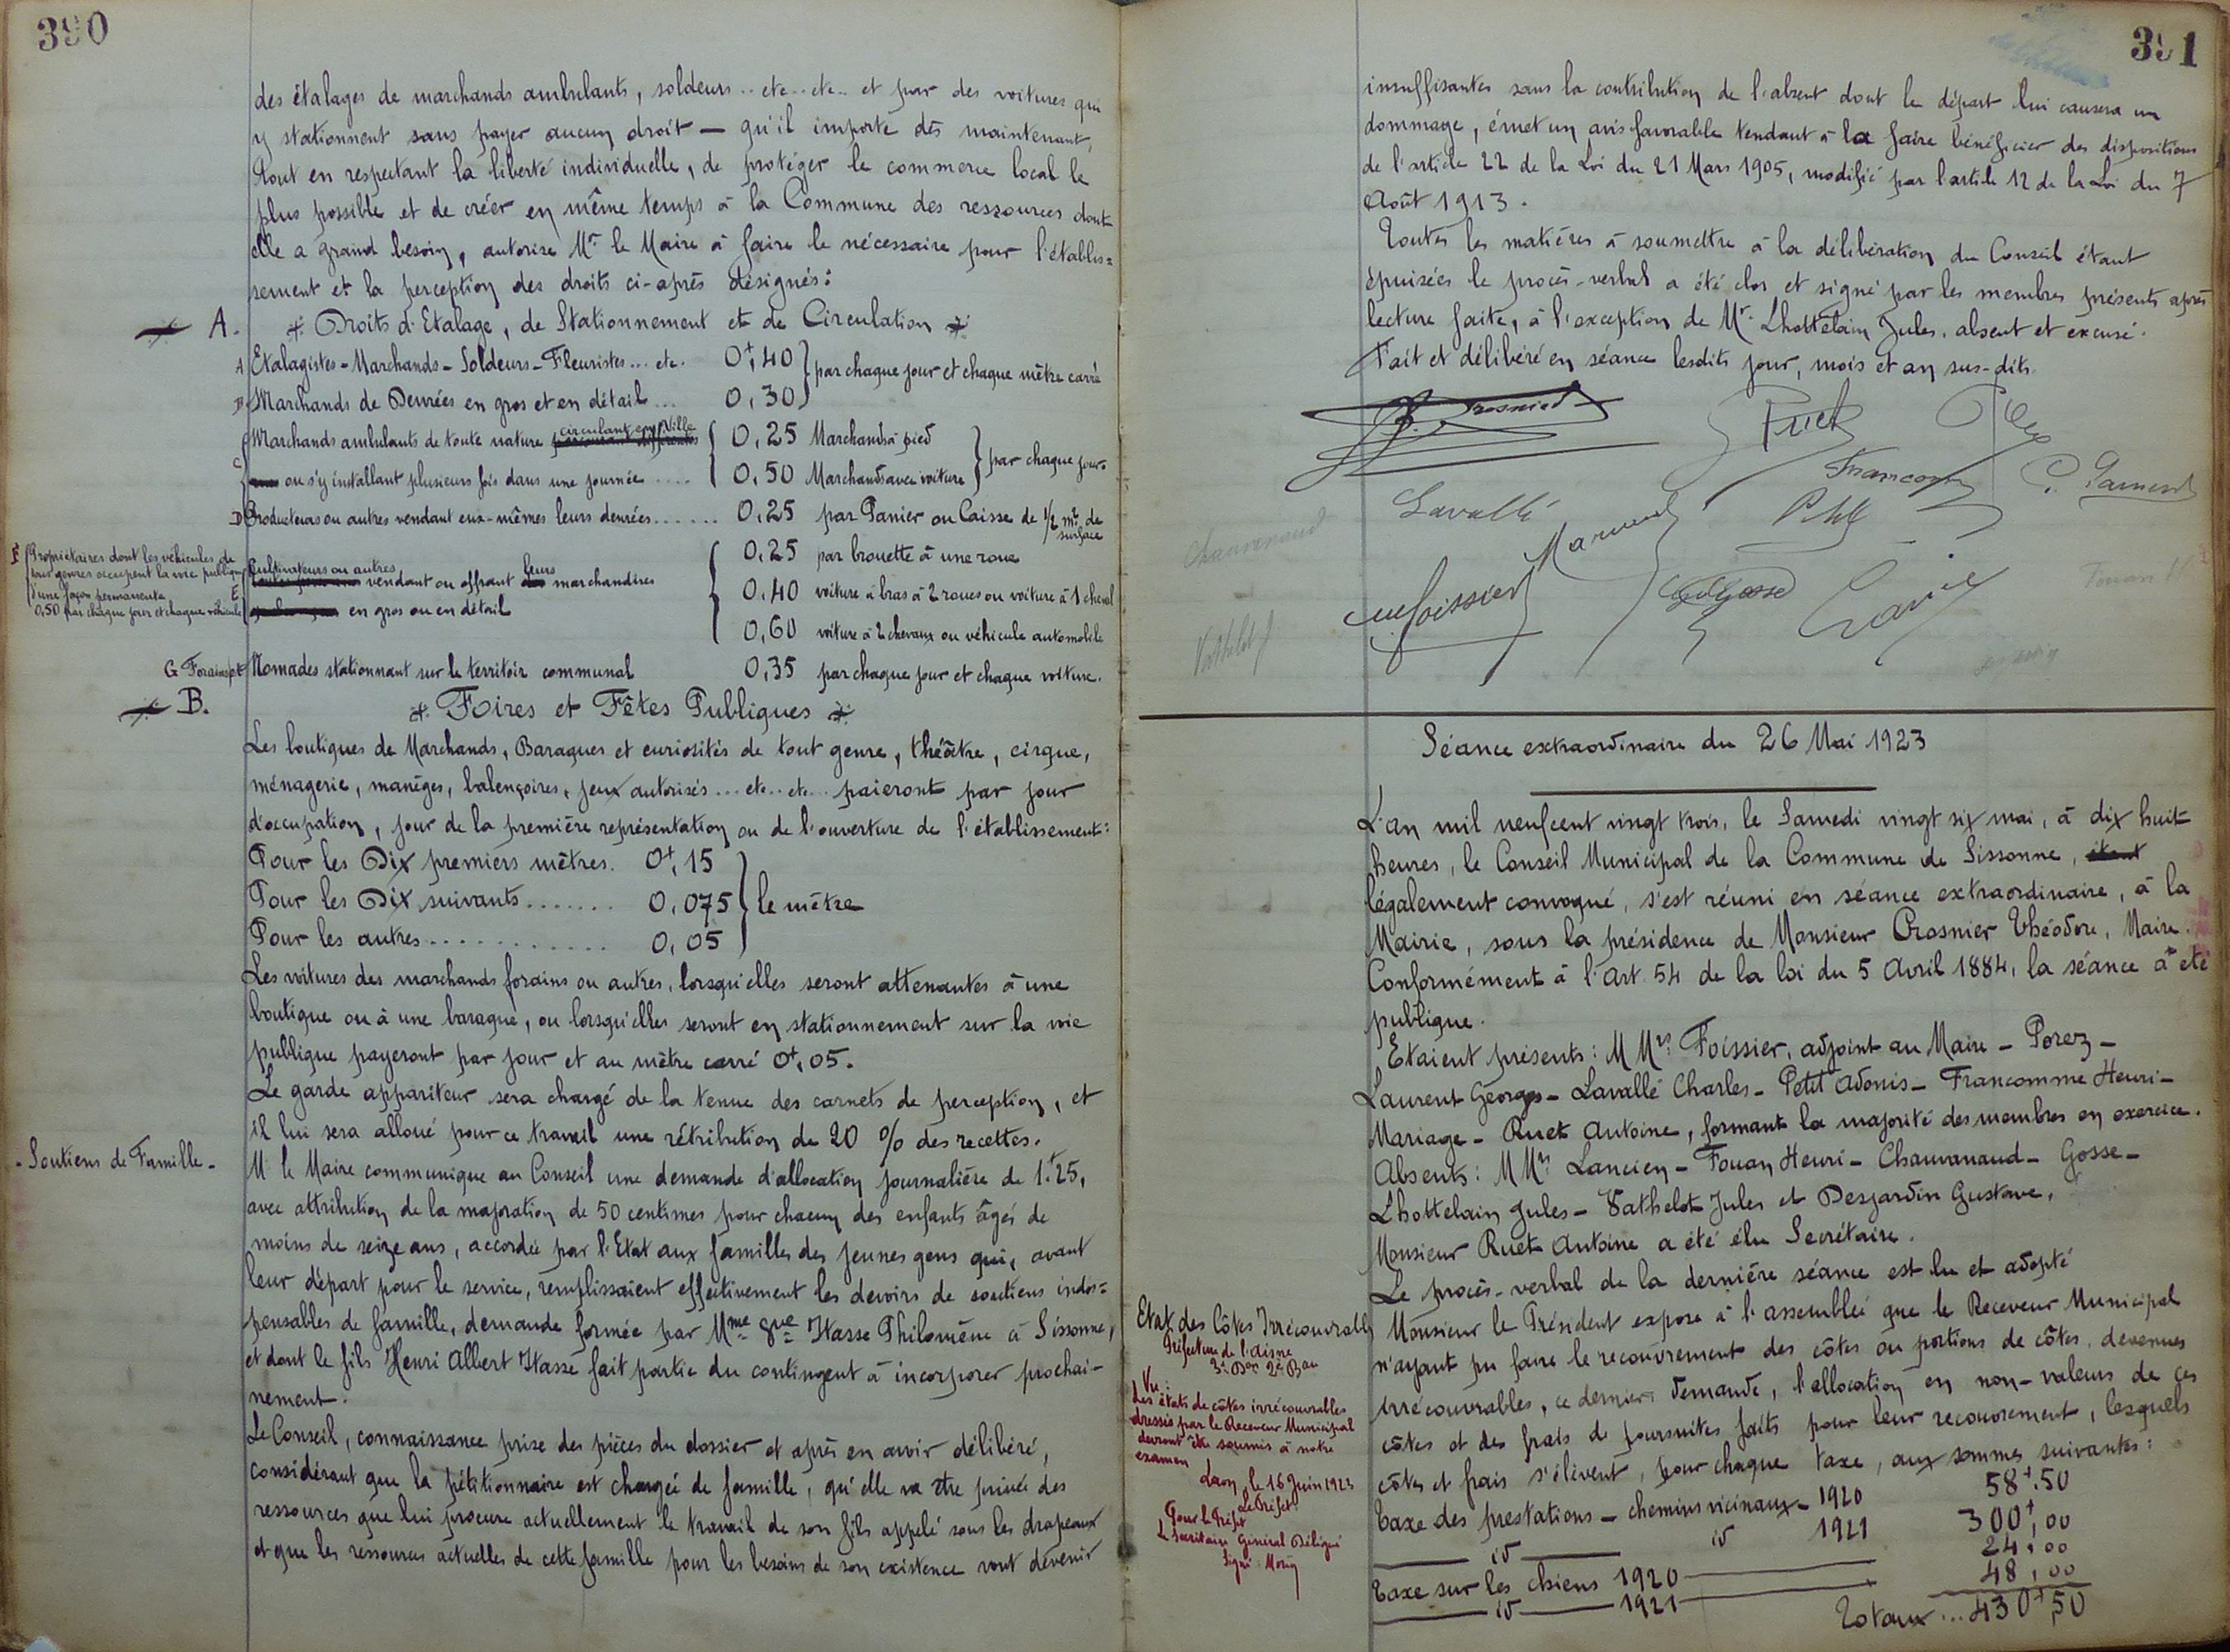 390
des étalages de marchands ambulants, soldeurs .. etc .. etc .. et par des voitures qui
y stationnent sans payer aucun droit — qu'il importe dès maintenant,
tout en respectant la liberté individuelle, de protéger le commerce local le
plus possible et de créer en même temps à la Commune des ressources dont
elle a grand besoin, autorise Mr le Maire à faire le nécessaire pour l'établis=
sement et la perception des droits ci-après désignés :
A. Droits d'Etalage, de Stationnement et de Circulation
A Etalagistes - Marchands - Soldeurs - Fleuristes ... etc. 0f,40 par chaque jour et chaque mètre carré
B Marchands de Denrées en gros et en détail ... 0,30
C Marchands ambulants de toute nature circulant en Ville 0,25 Marchands à pied
ou s'y installant plusieurs fois dans une journée ..... 0,50 Marchands avec voiture par chaque jour
D Producteurs ou autres vendant eux-mêmes leurs denrées ...... 0,25 par Panier ou Caisse de 1/2 m2 de surface
0,25 par brouette à une roue
E Cultivateurs ou autres vendant ou offrant leurs marchandises 0,40 voiture à bras à 2 roues ou voiture à 1 cheval
en gros ou en détail
0,60 voiture à 2 chevaux ou véhicule automobile
F Propriétaires dont les véhicules de
tous genres occupent la voie publique
d'une façon permanente
0,50 par chaque jour et chaque véhicule
G Forains et Nomades stationnant sur le territoir communal 0,35 par chaque jour et chaque voiture.
B. Foires et Fêtes Publiques
Les boutiques de Marchands, Baraques et curiosités de tout genre, théâtre, cirque,
ménagerie, manèges, balençoires, jeux autorisés ... etc .. etc ... paieront par jour
d'occupation, jour de la première représentation ou de l'ouverture de l'établissement :
Pour les Dix premiers mètres. 0f,15
Pour les Dix suivants ....... 0,075 le mètre
Pour les autres ............ 0,05
Les voitures des marchands forains ou autres, lorsqu'elles seront attenantes à une
boutique ou à une baraque, ou lorsqu'elles seront en stationnement sur la voie
publique payeront par jour et au mètre carré 0f,05.
Le garde appariteur sera chargé de la tenue des carnets de perception, et
il lui sera alloué pour ce travail une rétribution de 20 % des recettes.
- Soutiens de Famille -
M. le Maire communique au Conseil une demande d'allocation journalière de 1f25,
avec attribution de la majoration de 50 centimes pour chacun des enfants âgés de
moins de seize ans, accordée par l'Etat aux familles des jeunes gens qui, avant
leur départ pour le service, remplissaient effectivement les devoirs de soutiens indis=
pensables de famille, demande formée par Mme Vve Hasse Philomène à Sissonne,
et dont le fils Henri Albert Hasse fait partie du contingent à incorporer prochai-
nement.
Le Conseil, connaissance prise des pièces du dossier et après en avoir délibéré,
considérant que la pétitionnaire est chargée de famille, qu'elle va être privée des
ressources que lui procure actuellement le travail de son fils appelé sous les drapeaux
et que les ressources actuelles de cette famille pour les besoins de son existence vont devenir
391
insuffisantes sans la contribution de l'absent dont le départ lui causera un
dommage, émet un avis favorable tendant à la faire bénéficier des dispositions
de l'article 22 de la Loi du 21 Mars 1905, modifié par l'article 12 de la Loi du 7
Août 1913.
Toutes les matières à soumettre à la délibération du Conseil étant
épuisées le procès-verbal a été clos et signé par les membres présents après
lecture faite, à l'exception de Mr. Lhottelain Jules, absent et excusé.
Fait et délibéré en séance lesdits jour, mois et an sus-dits.
Crosnier
Ruet
Francomme
Lavallé
Petit
Chauvanaud
Foissier
Gosse
Fouan H
Vathelot J
Séance extraordinaire du 26 Mai 1923
L'an mil neuf cent vingt trois, le Samedi vingt six mai, à dix huit
heures, le Conseil Municipal de la Commune de Sissonne, étant
légalement convoqué, s'est réuni en séance extraordinaire, à la
Mairie, sous la présidence de Monsieur Crosnier Théodore, Maire.
Conformément à l'Art. 54 de la loi du 5 Avril 1884, la séance a été
publique.
Etaient présents : MMrs Foissier, adjoint au Maire - Porez -
Laurent Georges - Lavallé Charles - Petit Adonis - Francomme Henri -
Mariage - Ruet Antoine, formant la majorité des membres en exercice.
Absents : MMrs Lancien - Fouan Henri - Chauvanaud - Gosse -
Lhottelain Jules - Vathelot Jules et Desjardin Gustave.
Monsieur Ruet Antoine a été élu Secrétaire.
Le procès-verbal de la dernière séance est lu et adopté
Etat des Côtes Irrécouvrables
Préfecture de l'Aisne
3e Don 2e Bau
Vu :
Les états de côtes irrécouvrables
dressés par le Receveur Municipal
devront être soumis à notre
examen
Laon, le 16 Juin 1923
Le Préfet
Pour le Préfet
Le Secrétaire Général Délégué
Signé :
Monsieur le Président expose à l'assemblée que le Receveur Municipal
n'ayant pu faire le recouvrement des côtes ou portions de côtes, devenues
irrécouvrables, ce dernier demande, l'allocation en non-valeurs de ces
côtes et des frais de poursuites faits pour leur recouvrement, lesquels
côtes et frais s'élèvent, pour chaque taxe, aux sommes suivantes :
Taxe des prestations - chemins vicinaux - 1920 58f.50
id id 1921 300f,00
Taxe sur les chiens 1920 24,00
id 1921 48,00
Totaux ... 430f,50